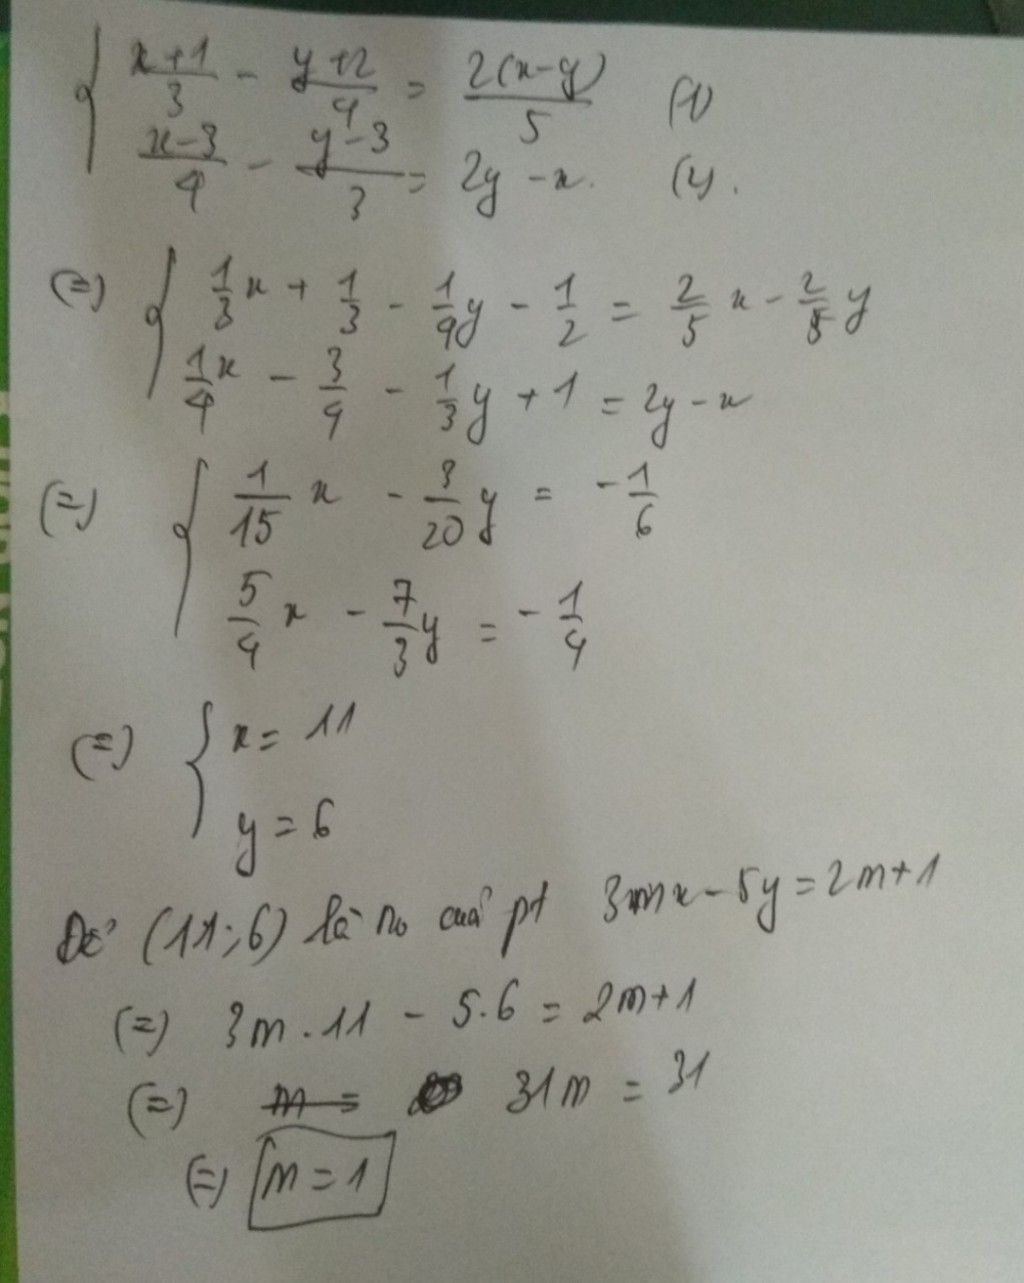 { x+1/3 - y+2/4 = 2(x-y)/5 (1)
x-3/4 - y-3/3 = 2y - x. (2).
(=) { 1/3 x + 1/3 - 1/4 y - 1/2 = 2/5 x - 2/5 y
1/4 x - 3/4 - 1/3 y + 1 = 2y - x
(=) { 1/15 x - 3/20 y = - 1/6
5/4 x - 7/3 y = - 1/4
(=) { x = 11
y = 6
Để (11;6) là no của pt 3mx - 5y = 2m+1
(=) 3m . 11 - 5.6 = 2m+1
(=) 31m = 31
(=) m = 1